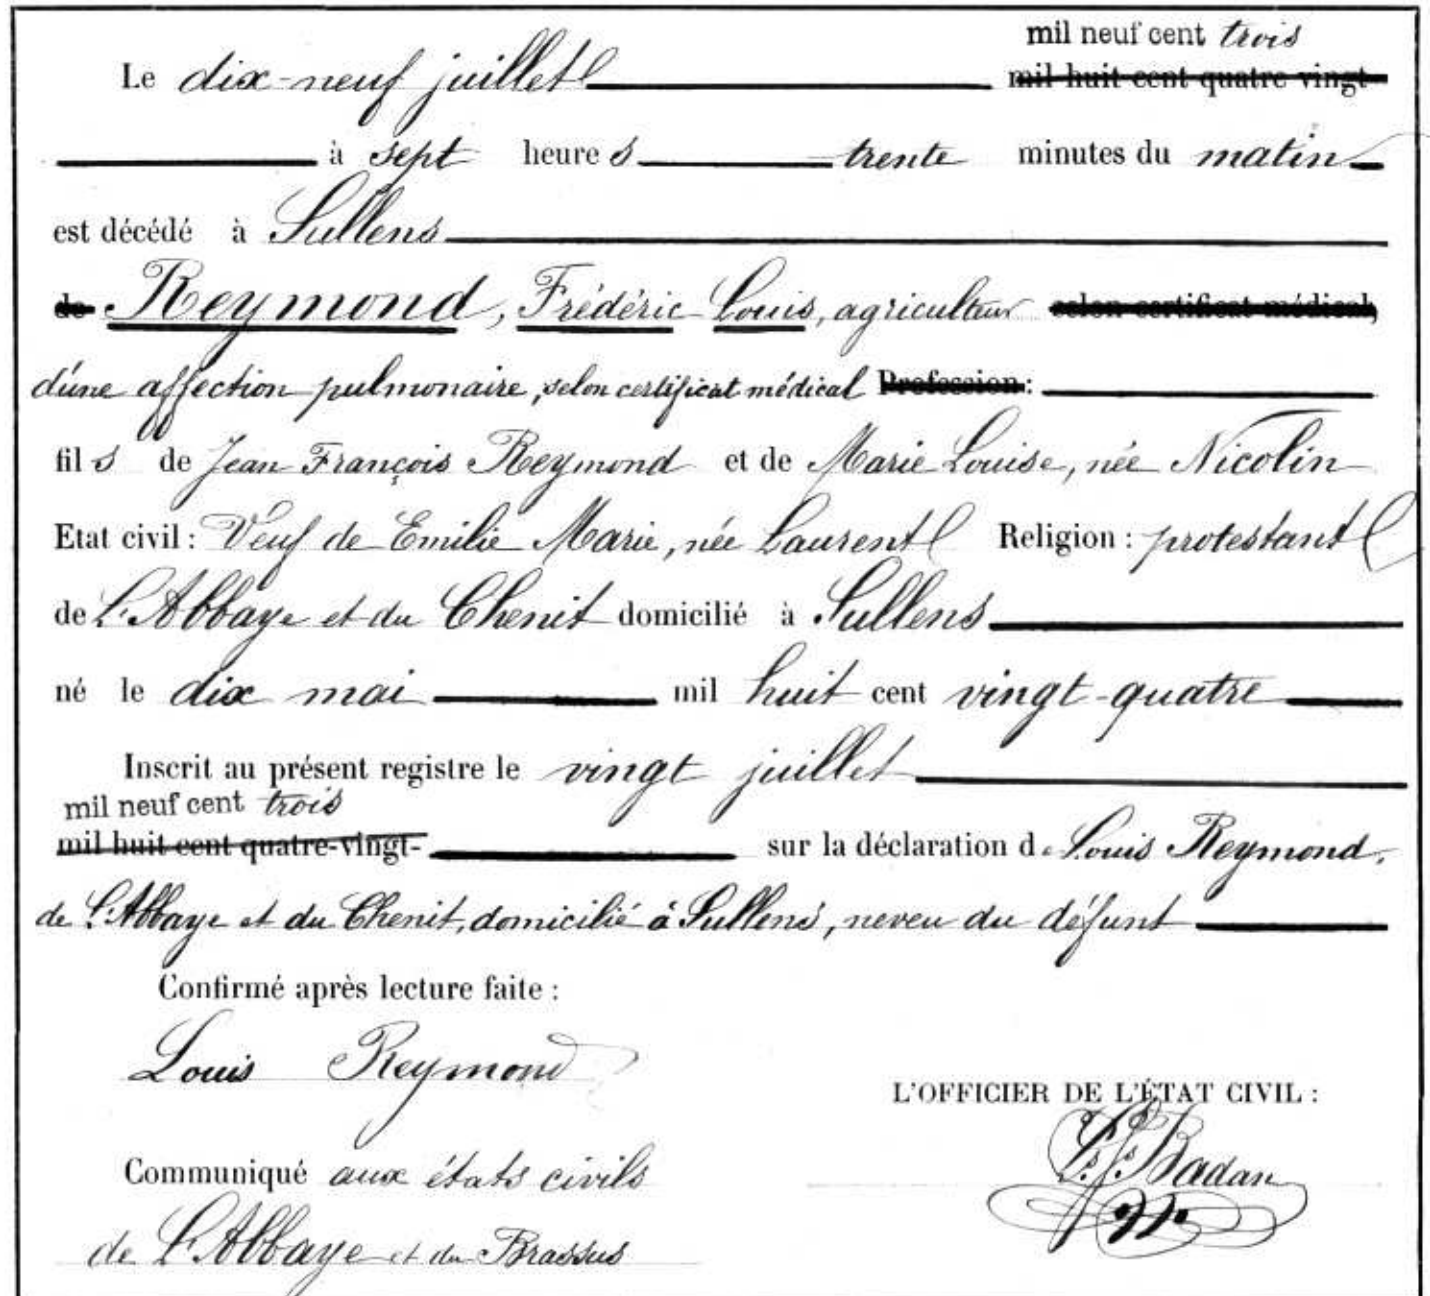 mil neuf cent trois
Le dix-neuf juillet mil huit cent quatre vingt
à sept heures trente minutes du matin
est décédé à Sullens
de Reymond, Frédéric Louis, agriculteur selon certificat médical,
d'une affection pulmonaire, selon certificat médical Profession:
fils de Jean François Reymond et de Marie Louise, née Nicolin
Etat civil: Veuf de Emilie Marie, née Laurent Religion: protestant
de L'Abbaye et du Chenit domicilié à Sullens
né le dix mai mil huit cent vingt-quatre
Inscrit au présent registre le vingt juillet
mil neuf cent trois
mil huit cent quatre-vingt- sur la déclaration de Louis Reymond,
de L'Abbaye et du Chenit, domicilié à Sullens, neveu du défunt
Confirmé après lecture faite:
Louis Reymond
L'OFFICIER DE L'ÉTAT CIVIL:
Badan
Communiqué aux états civils
de L'Abbaye et du Brassus